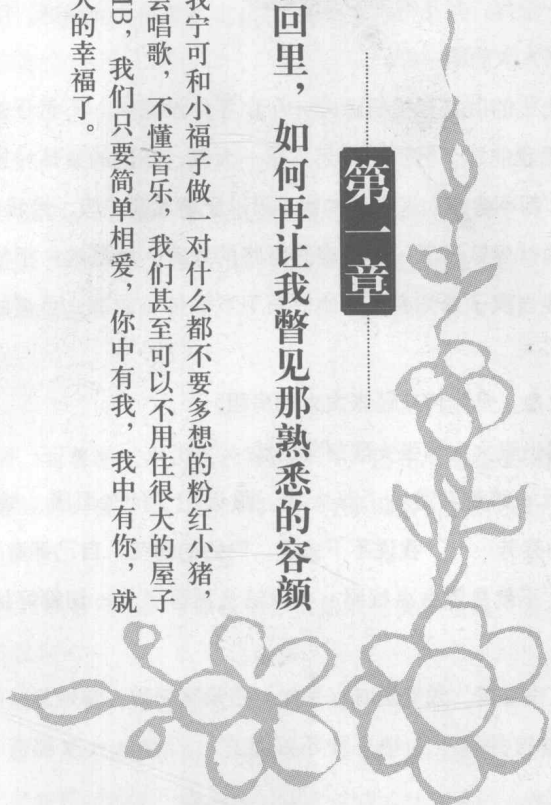 第一章
回里，如何再让我瞥见那熟悉的容颜
我宁可和小福子做 对什么都不要多想的粉红小猪，
会唱歌，不懂音乐，我们甚至可以不用住很大的屋子
我们只要简单相爱，你中有我，我中有你，就
大的幸福了。